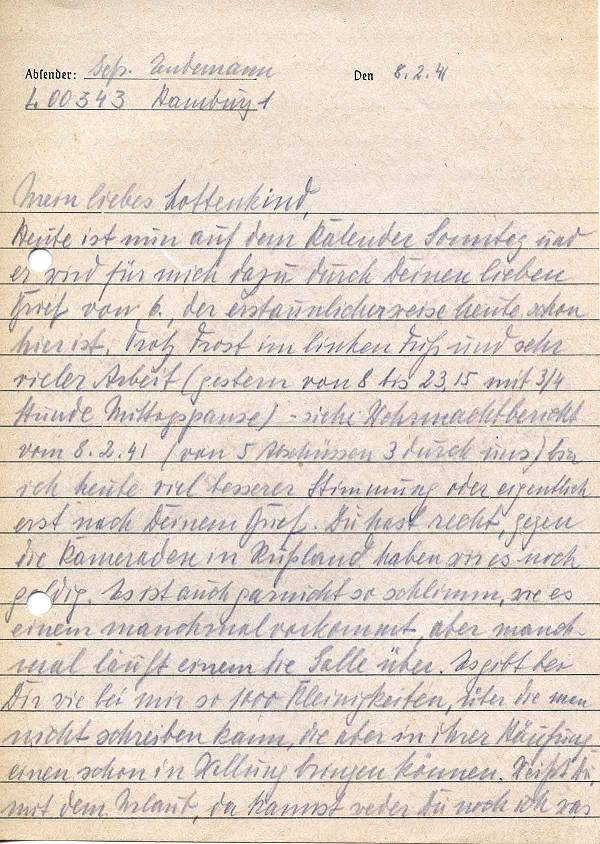 Absender: Sefr. Lindemann Den 8.2.41
L 00343 Hamburg 1
Mein liebes Lottenkind,
Heute ist nun auf dem Kalender Sonntag und
er wird für mich dazu durch Deinen lieben
Brief vom 6., der erstaunlicherweise heute schon
hier ist. Trotz Frost im linken Fuß und sehr
vieler Arbeit (gestern von 8 bis 23,15 mit 3/4
Stunde Mittagspause) - siehe Wehrmachtbericht
vom 8.2.41 (von 5 Abschüssen 3 durch uns) bin
ich heute viel besserer Stimmung oder eigentlich
erst nach Deinem Brief. Du hast recht, gegen
die Kameraden in Rußland haben wir es noch
goldig. Es ist auch garnicht so schlimm, wie es
einem manchmal vorkommt, aber manch-
mal läuft einem die Galle über. Es gibt bei
Dir wie bei mir so 1000 Kleinigkeiten, über die man
nicht schreiben kann, die aber in ihrer Häufung
einen schon in Wallung bringen können. Weißt Du,
mit dem Urlaub, da kannst weder Du noch ich was